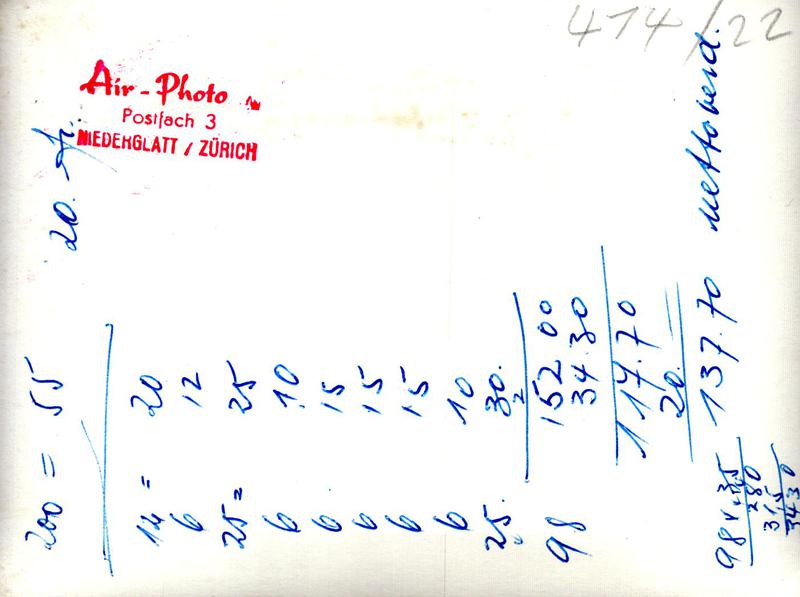 414/22
Air-Photo
Postfach 3
NIEDERGLATT / ZÜRICH
200 = 55 20. Fr.
14 = 20
6 12
25 = 25
6 10
6 15
6 15
6 15
6 10
25. 30.
98 152 00
34.30
117.70
20.
137.70
98 x 35
280
315
3430